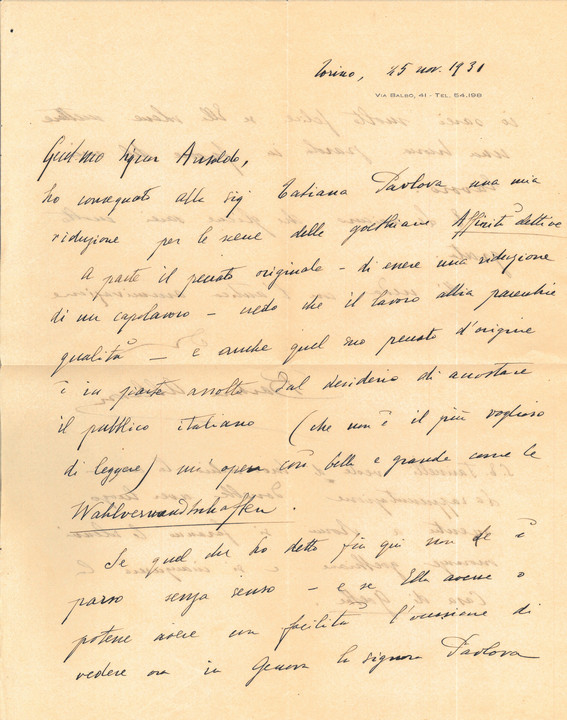 Torino, 25 nov. 1931
VIA BALBO, 41 - TEL. 54.198
Gent.mo Signor Ansaldo,
ho consegnato alla Sig. Tatiana Pavlova una mia
riduzione per le scene delle goethiane Affinità elettive
A parte il peccato originale – di essere una riduzione
di un capolavoro – credo che il lavoro abbia parecchie
qualità – e anche quel suo peccato d'origine
è in parte assolto dal desiderio di accostare
il pubblico italiano (che non è il più voglioso
di leggere) un'opera così bella e grande come le
Wahlverwandtschaften.
Se quel che ho detto fin qui non Le è
parso senza senso – e se Ella avesse o
potesse avere con facilità l'occasione di
vedere ora in Genova la signora Pavlova